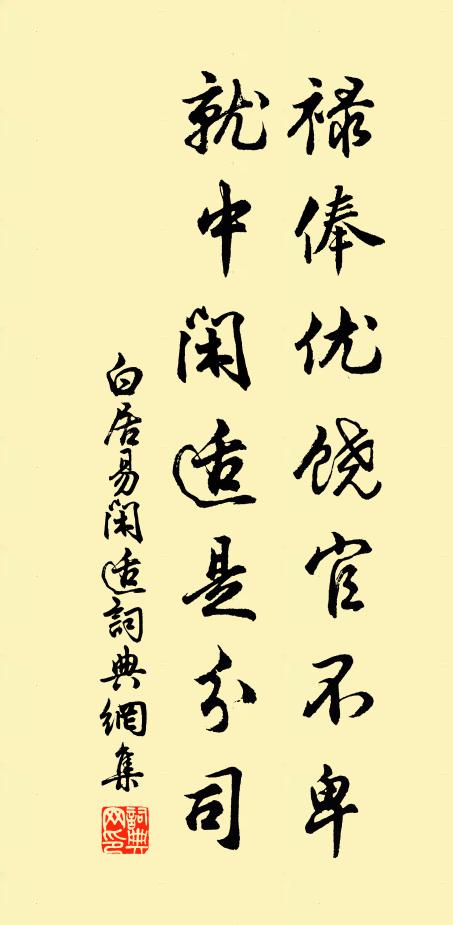 禄俸优饶官不卑
就中闲适是分司
白居易闲适詞典網集
詞典网印